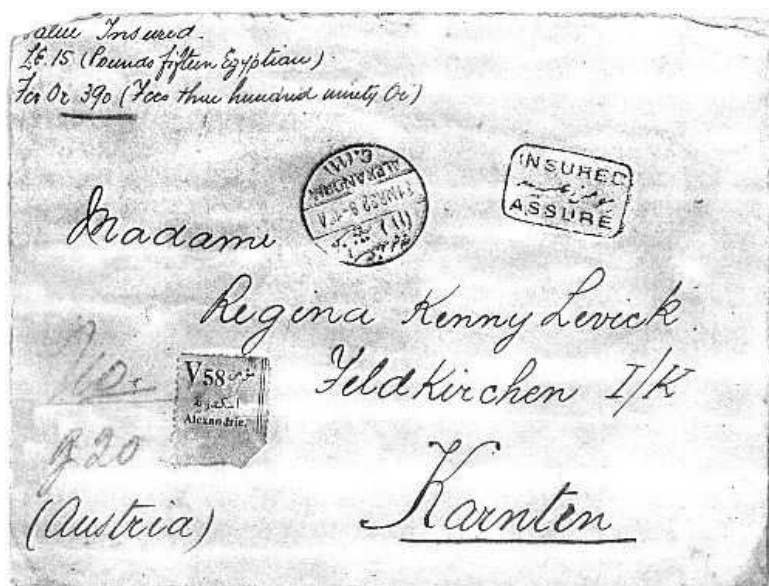 Value Insured.
L.E. 15 (Pounds fifteen Egyptian)
Fcs Or 390 (Fccs three hundred ninety Or)
C. (11)
ALEXANDRIA
INSURED
ASSURÉ
Madame
Regina Kenny Levick
Feldkirchen I/K
V 58
Alexandrie.
20
(Austria)
Karnten